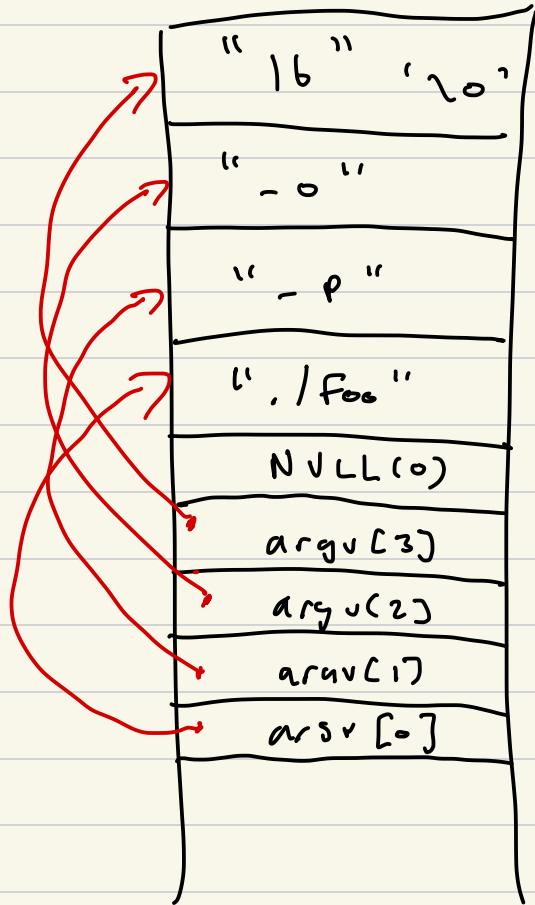 "16" '\0'
"-o"
"-p"
"./foo"
NULL(0)
argv[3]
argv[2]
argv[1]
argv[0]